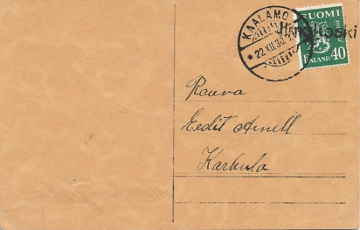 KAALAMO
22.XII.30
SUOMI
FINLAND 40
Rouva
Eedit Arnell
Karkula